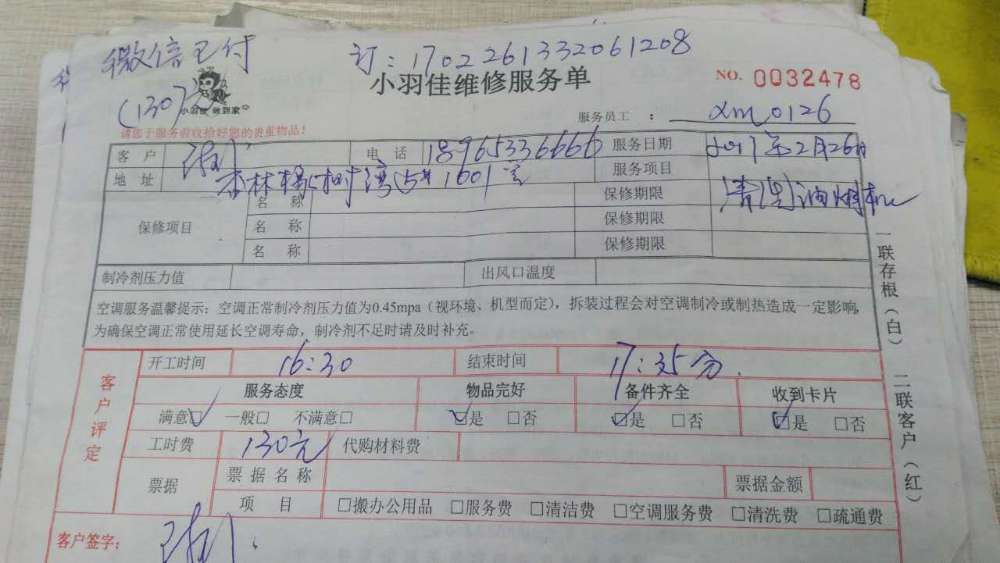 微信已付 订：1702261332061208
(130)
小羽佳 做到家
小羽佳维修服务单 NO. 0032478
服务员工 ： xm0126
请您于服务前收拾好您的贵重物品！
客 户 电 话 18965336666 服务日期 2017年2月26日
地 址 杏林 1601室 服务项目 清洗油烟机
保修项目 名 称 保修期限
名 称 保修期限
名 称 保修期限
制冷剂压力值 出风口温度
空调服务温馨提示：空调正常制冷剂压力值为0.45mpa（视环境、机型而定），拆装过程会对空调制冷或制热造成一定影响，
为确保空调正常使用延长空调寿命，制冷剂不足时请及时补充。
一联存根（白） 二联客户（红）
客户评定
开工时间 16:30 结束时间 17:35分
服务态度 物品完好 备件齐全 收到卡片
满意☑ 一般□ 不满意□ ☑是 □否 ☑是 □否 ☑是 □否
工时费 130元 代购材料费
票据 票 据 名 称 票据金额
项 目 □搬办公用品 □服务费 □清洁费 □空调服务费 □清洗费 □疏通费
客户签字：